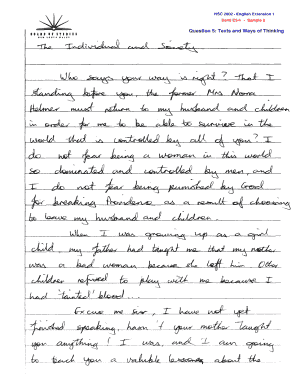 BOARD OF STUDIES
NEW SOUTH WALES
HSC 2002 - English Extension 1
Band E3/4 - Sample 5
Question 5: Texts and Ways of Thinking
The Individual and Society
Who says your way is right? That I
standing before you, the former Mrs Nora
Helmer must return to my husband and children
in order for me to be able to survive in the
world that is controlled by all of you? I
do not fear being a woman in this world
so dominated and controlled by men, and
I do not fear being punished by God
for breaking Providence as a result of choosing
to leave my husband and children.
When I was growing up as a girl
child, my father had taught me that my mother
was a bad woman because she left him. Other
children refused to play with me because I
had 'tainted' blood...
Excuse me sir, I have not yet
finished speaking, hasn't your mother taught
you anything! I was, and I am going
to teach you a valuable about the